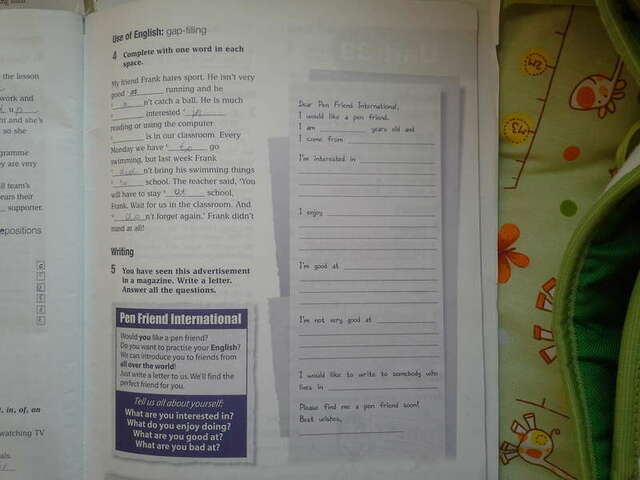 the lesson
work and
u p
ht and she's
so she
gramme
y are very
ll team's
ears their
supporter.
epositions
t, in, of, on
watching TV
als.
Use of English: gap-filling
4 Complete with one word in each
space.
My friend Frank hates sport. He isn't very
good at running and he
n't catch a ball. He is much
interested in
reading or using the computer.
is in our classroom. Every
Monday we have to go
swimming, but last week Frank
did n't bring his swimming things
to school. The teacher said, 'You
will have to stay at school,
Frank. Wait for us in the classroom. And
do n't forget again.' Frank didn't
mind at all!
Writing
5 You have seen this advertisement
in a magazine. Write a letter.
Answer all the questions.
Pen Friend International
Would you like a pen friend?
Do you want to practise your English?
We can introduce you to friends from
all over the world!
Just write a letter to us. We'll find the
perfect friend for you.
Tell us all about yourself:
What are you interested in?
What do you enjoy doing?
What are you good at?
What are you bad at?
Dear Pen Friend International,
I would like a pen friend.
I am years old and
I come from
I'm interested in
I enjoy
I'm good at
I'm not very good at
I would like to write to somebody who
lives in
Please find me a pen friend soon!
Best wishes,